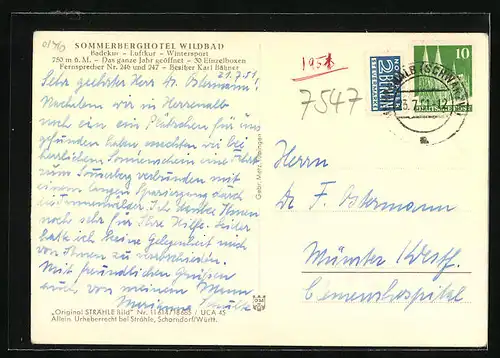 SOMMERBERGHOTEL WILDBAD
Badekur – Luftkur – Wintersport
750 m ü. M. – Das ganze Jahr geöffnet – 30 Einzelboxen
Fernsprecher Nr. 246 und 247 – Besitzer Karl Bätzner
21.7.51
Sehr geehrter Herr Dr. Ostermann!
Nachdem wir in Herrenalb
noch ein Plätzchen für uns
gefunden haben machten wir bei
herrlichem Sonnenschein eine Fahrt
zum Sommerberg verbunden mit
einem langen Spaziergang durch
die Tannenwälder. Ich danke Ihnen
noch sehr für Ihre Hilfe. Leider
hatte ich keine Gelegenheit mich
von Ihnen zu verabschieden.
Mit freundlichen Grüßen
auch von meinem Mann
Marianne
"Original STRÄHLE Bild" Nr. UCA 45
Allein. Urheberrecht bei Strähle, Schorndorf/Württ.
Gebr. Metz, Tübingen
1951
7547
NOTOPFER
2 BERLIN
STEUERMARKE
10
(SCHWARZW
.7.51.-12
Herrn
Dr. F. Ostermann
Münster Westf.
Clemenshospital